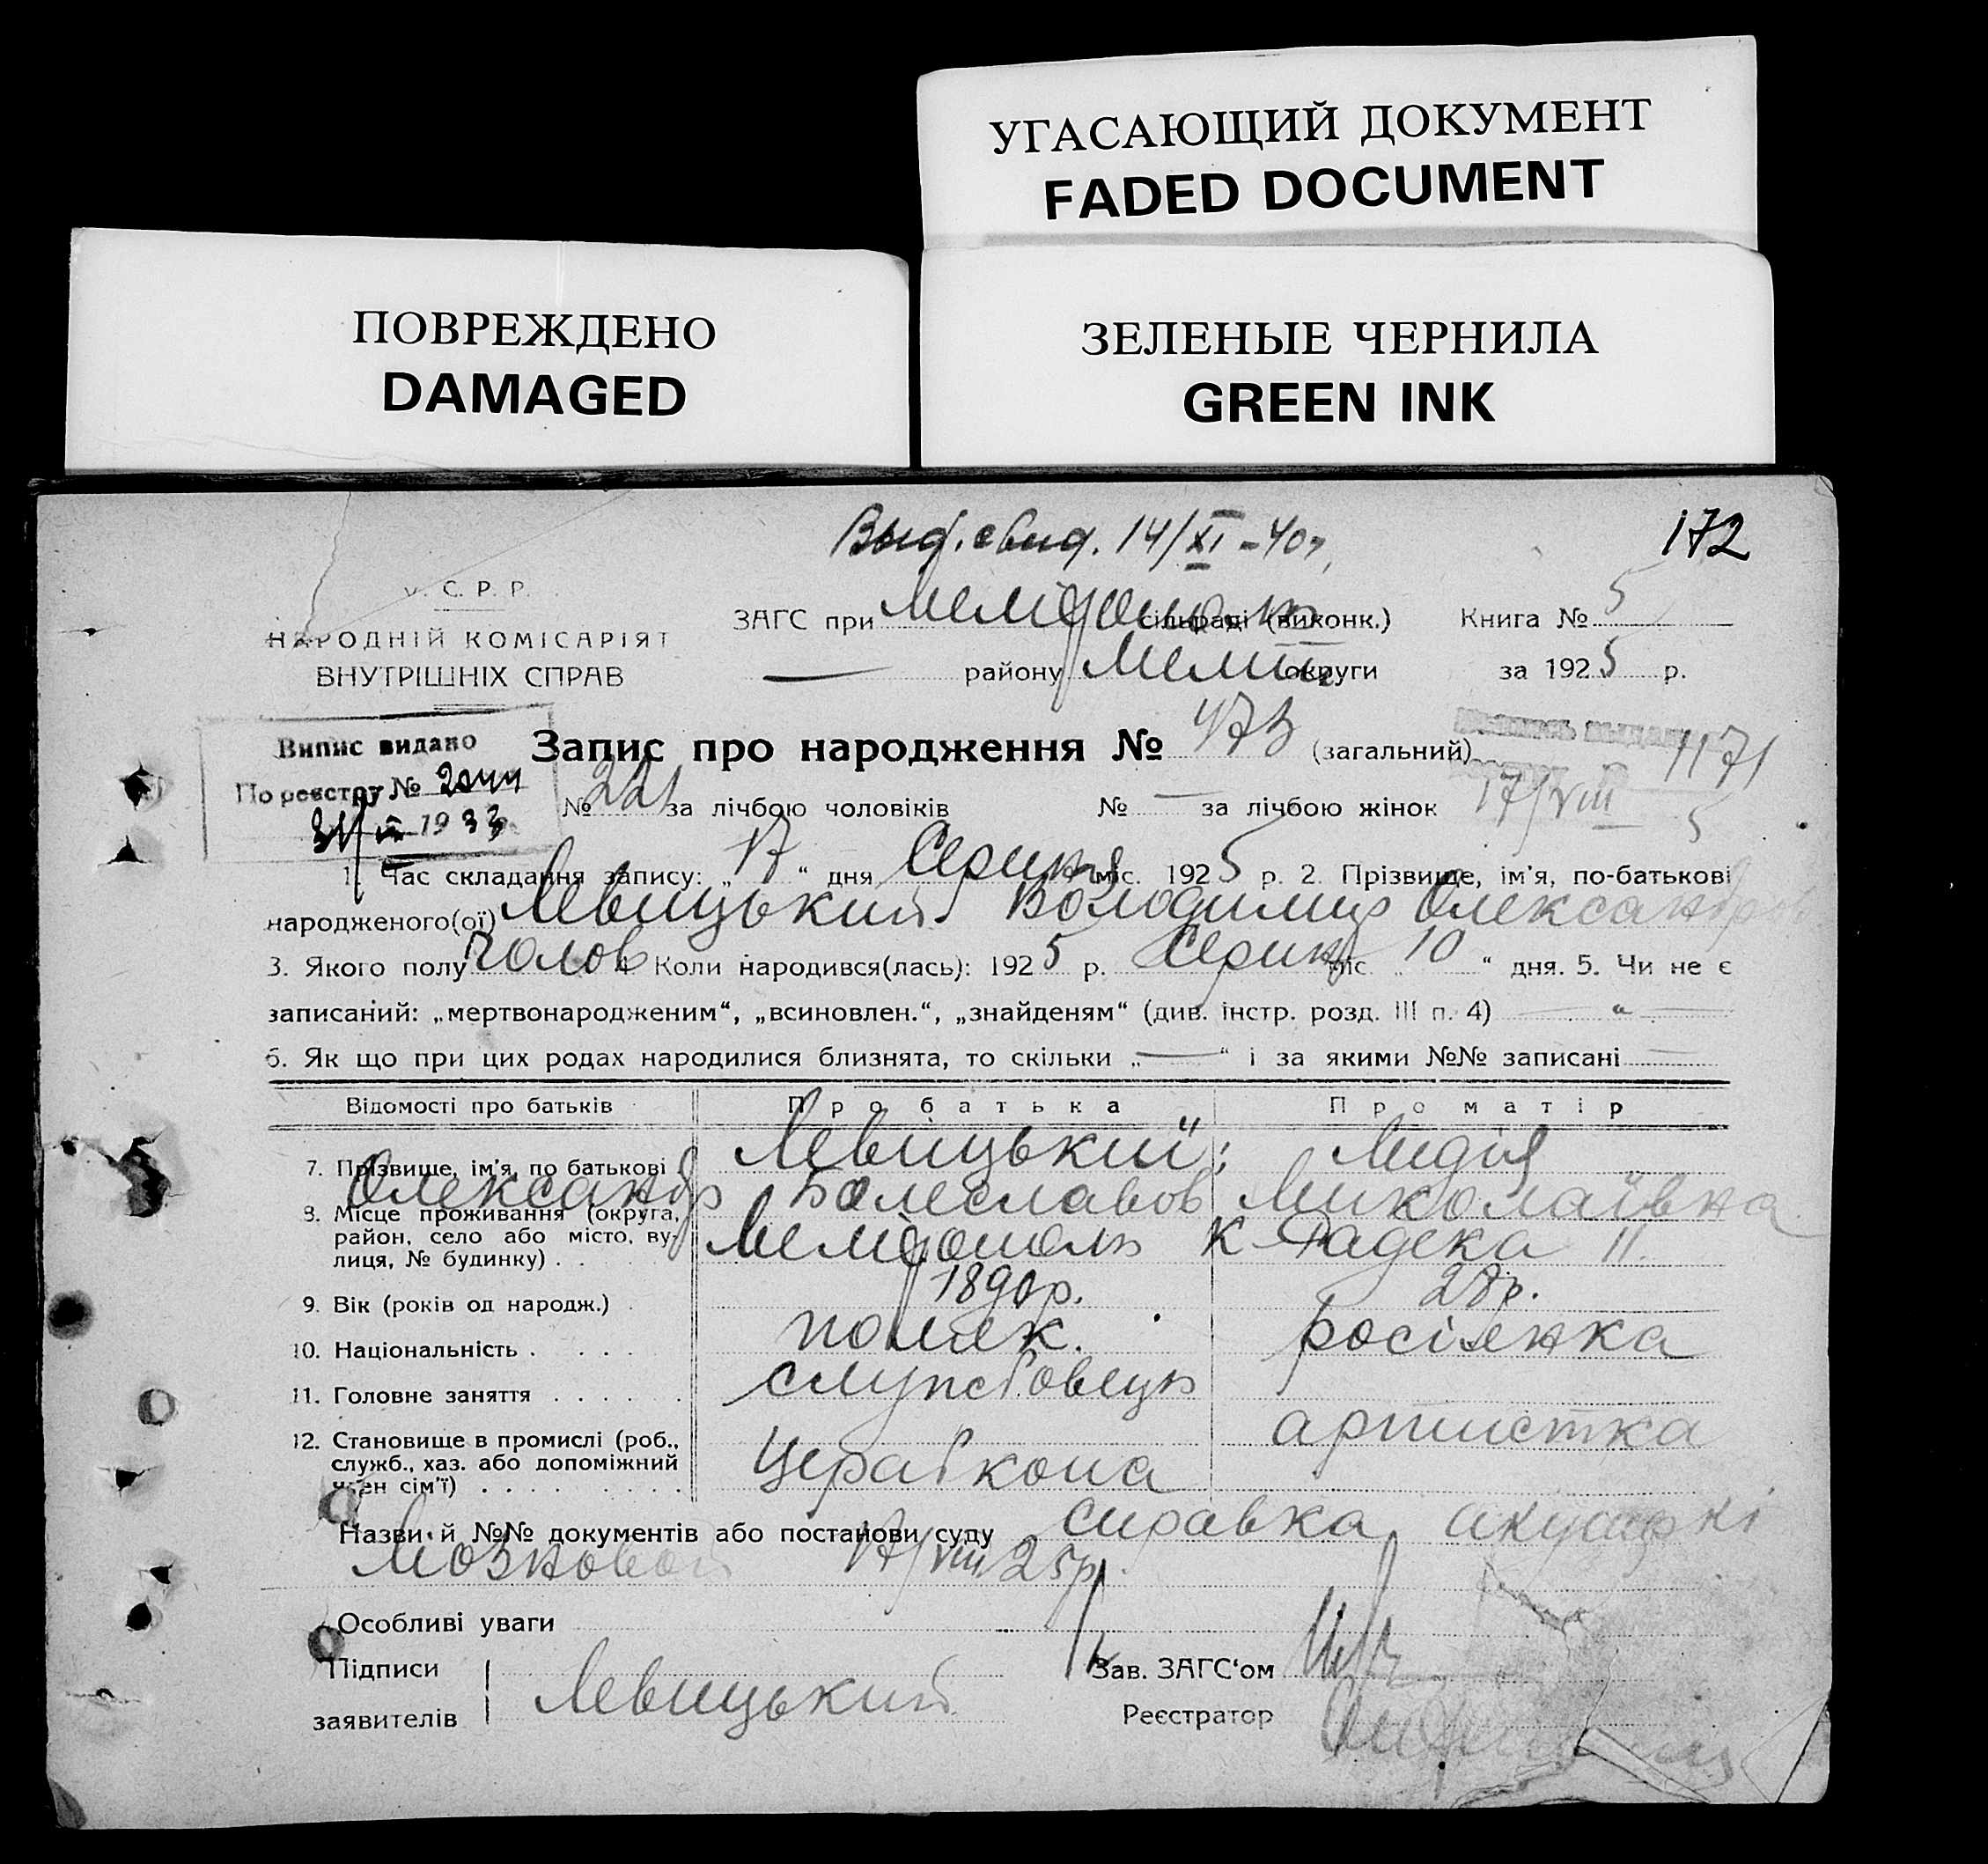 УГАСАЮЩИЙ ДОКУМЕНТ
FADED DOCUMENT
ПОВРЕЖДЕНО
DAMAGED
ЗЕЛЕНЫЕ ЧЕРНИЛА
GREEN INK
Выд. свид. 14/XI-40г.
172
У. С. Р. Р.
НАРОДНІЙ КОМІСАРІЯТ
ВНУТРІШНІХ СПРАВ
ЗАГС при Мелітополь сільраді (виконк.) Книга № 5
— району Меліт. округи за 1925 р.
Випис видано
По реєстру №
1933
Запис про народження № 473 (загальний)
1171
№ 221 за лічбою чоловіків № — за лічбою жінок
17/VIII 5
1. Час складання запису: „17“ дня Серпня міс. 1925 р. 2. Прізвище, ім'я, по-батькові
народженого(ої) Левицький Володимир Олександр
3. Якого полу Чолов 4 Коли народився(лась): 1925 р. Серпн міс. „10“ дня. 5. Чи не є
записаний: „мертвонародженим“, „всиновлен.“, „знайденям“ (див. інстр. розд. III п. 4) — “ —
6. Як що при цих родах народилися близнята, то скільки „—“ і за якими №№ записані —
Відомості про батьків Про батька Про матір
7. Прізвище, ім'я, по батькові Левицький; Лидія
Олександр Болеславов Миколаївна
8. Місце проживання (округа, район, село або місто, вулиця, № будинку) . . Мелітополь К Радека 11.
9. Вік (років од народж.) . 1890р. 28р.
10. Національність . . . . поляк. росіянка
11. Головне заняття . . . . . службовець
артистка
12. Становище в промислі (роб., служб., хаз. або допоміжний член сім'ї) . . . . . . . . . Церабкопа
Назви й №№ документів або постанови суду справка акушерки
17/VIII 25р.
Особливі уваги
Підписи
заявителів
Левицький
Зав. ЗАГС'ом
Реєстратор